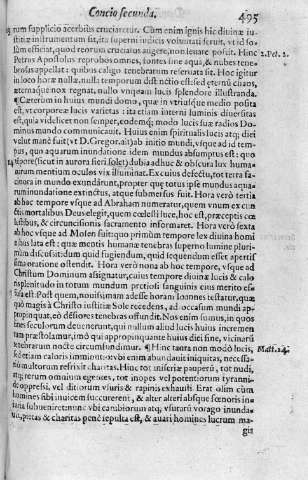 Concio secunda. 495
rum supplicio acerbius cruciaretur. Cùm enim ignis hic diuinæ iu-
stitiæ instrumentum sit, ita superni iudicis voluntati seruit, vt id so-
lùm efficiat, quod reorum cruciatus augere, non leuare possit. Hinc
Petrus Apostolus reprobos omnes, fontes sine aqua, & nubes tene-
brosas appellat: quibus caligo tenebrarum reseruata sit. Hoc igitur
in loco horæ nullæ, nulla temporum distinctio est: sed æternū chaos,
æternaque nox regnat, nullo vnquam lucis splendore illustranda.
¶Cæterùm in huius mundi domo, quæ in vtriusque medio posita
est, vt corporeæ lucis varietas: ita etiam interni luminis diuersitas
est, quia videlicet non semper, eodemq́; modo lucis suæ radios Do-
minus mundo communicauit. Huius enim spiritualis lucis atq; diei
velut mane fuit (vt D. Gregor. ait) ab initio mundi, vsque ad id tem-
pus, quo aquarum inundatione idem mundus absumptus est: quo
tempore (sicut in aurora fieri solet) dubia adhuc & obscura lux huma-
narum mentium oculos vix illuminat. Ex cuius defectu, tot terra fa-
cinora in mundo exundârunt, propter quę totus ipse mundus aqua-
rum inundatione extinctus, atque submersus fuit. Hora verò tertia
ab hoc tempore vsque ad Abraham numeratur, quem vnum ex cun-
ctis mortalibus Deus elegit, quem cœlesti luce, hoc est, præceptis cœ-
lestibus, & circuncisionis sacramento informaret. Hora verò sexta
ab hoc vsque ad Mosen fuit: quo primùm tempore lex diuina homi-
nibus lata est: quæ mentis humanæ tenebras superno lumine pluri-
mùm discussit: dum quid fugiendum, quid sequendum esset aperti
ratione ostendit. Hora verò nona ab hoc tempore, vsque ad
Christum Dominum assignatur, cuius tempore diuinæ lucis & cælo
splenditudo in totum mundum pretiosi sanguinis eius merito ef-
fusa est. Post quem, nouissimam adesse horam Ioannes testatur, quæ
quò magis à Christo iustitiæ Sole recedens, ad occasum mundi ap-
propinquat, eò dēsiores tenebras offundit. Nos enim sumus, in quos
fines seculorum deuenerunt, qui nullum aliud lucis huius incremen-
tum præstolamur, imò qui appropinquante huius diei fine, vicinarū
tenebrarum nocte circumfundimur. ¶Hinc tanta non modò lucis,
sed etiam caloris imminutio: vbi enim abundauit iniquitas, necessa-
riò multorum refrixit charitas. Hinc tot miseriæ pauperū, tot nudi,
atq́; rerum omnium egentes, tot inopes vel potentiorum tyranni-
de oppressi, vel ditiorum vsuris & rapinis exhausti. Erat olim cùm
homines sibi inuicem succurrerent, & alter alteri absque fœnoris in-
iuria subueniret: nunc vbi carabiorum atq; vsurarū vorago inunda-
uit, pietas & charitas penè sepulta est, & auari homines lucrum ma-
gis
2. Pet. 2.
Matt. 24.